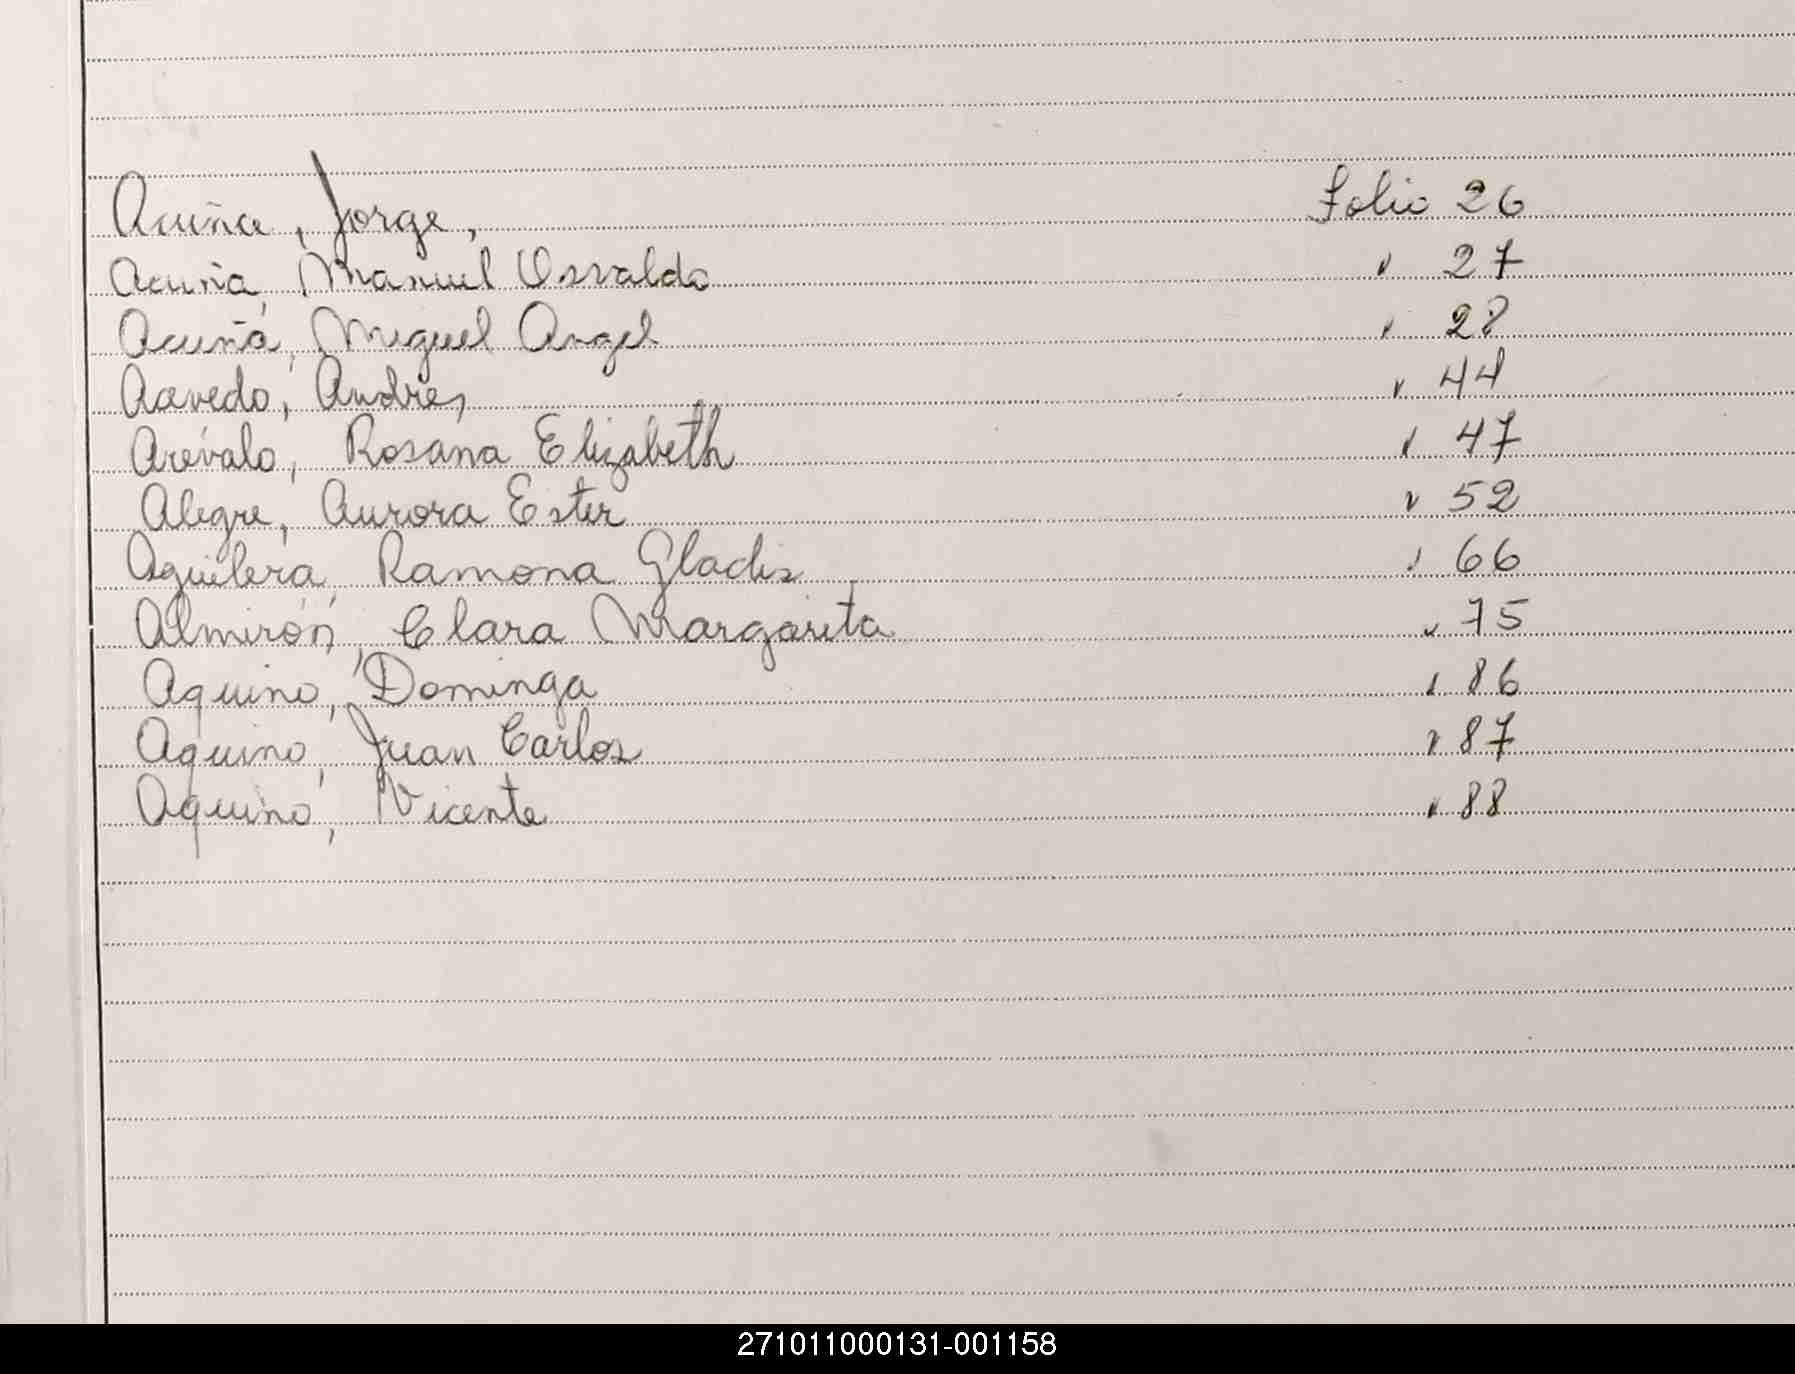 Acuña, Jorge, Folio 26
Acuña, Manuel Osvaldo " 27
Acuña, Miguel Angel " 28
Acevedo, Andrés " 44
Arévalo, Rosana Elizabeth " 47
Alegre, Aurora Ester " 52
Aguilera, Ramona Gladis " 66
Almirón, Clara Margarita " 75
Aquino, Dominga " 86
Aquino, Juan Carlos " 87
Aquino, Vicente " 88
271011000131-001158